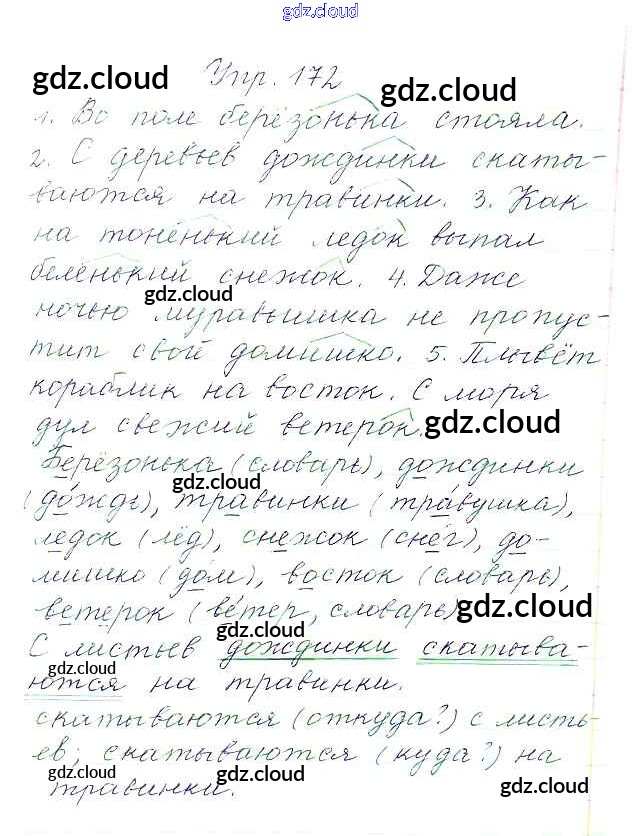 gdz.cloud
Упр. 172
gdz.cloud
gdz.cloud
1. Во поле берёзонька стояла.
2. С деревьев дождинки скаты-
ваются на травинки. 3. Как
на тоненький ледок выпал
беленький снежок. 4. Даже
gdz.cloud
ночью муравьишка не пропус-
тит свой домишко. 5. Плывёт
кораблик на восток. С моря
дул свежий ветерок.
gdz.cloud
Берёзонька (словарь), дождинки
gdz.cloud
(дождь), травинки (травушка),
ледок (лёд), снежок (снег), до-
мишко (дом), восток (словарь),
ветерок (ветер, словарь)
gdz.cloud
gdz.cloud
С листьев дождинки скатыва-
gdz.cloud
ются на травинки.
скатываются (откуда?) с листь-
ев; скатываются (куда?) на
gdz.cloud
gdz.cloud
gdz.cloud
травинки.